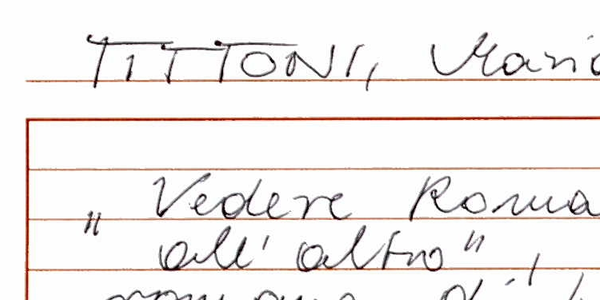 TITTONI, Mario
„ Vedere Roma
all' altro"